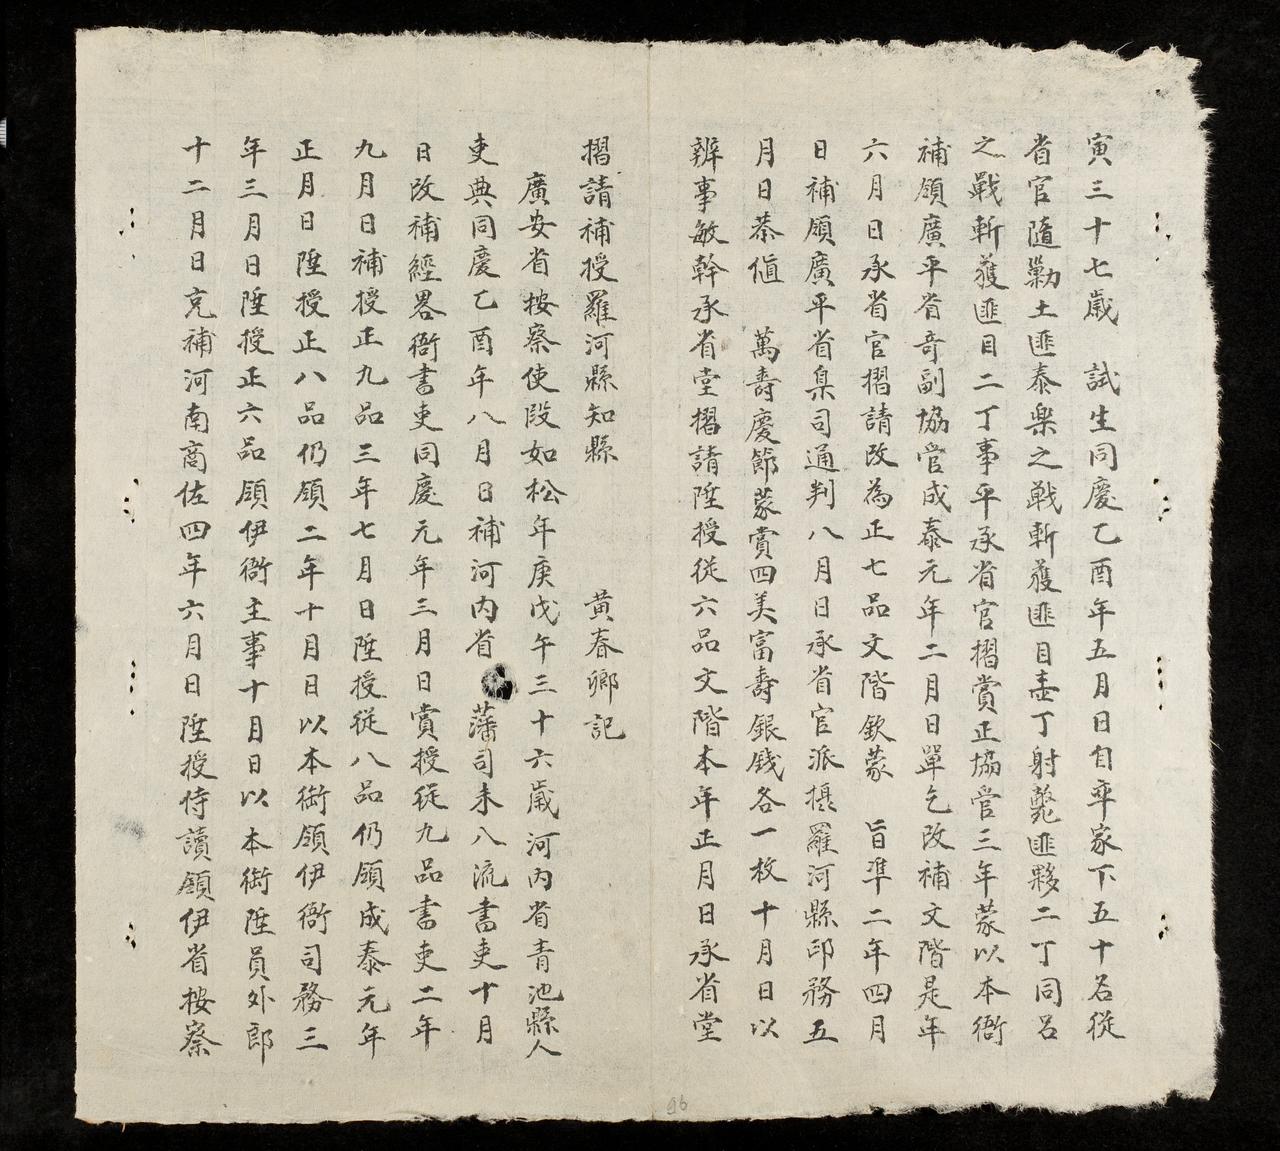 寅三十七歲　試生同慶乙酉年五月日自率家下五十名從
省官隨勦土匪泰樂之戰斬獲匪目壹丁射斃匪夥二丁同呂
之戰斬獲匪目二丁事平承省官摺賞正協管三年蒙以本衙
補領廣平省奇副協管成泰元年二月日單乞改補文階是年
六月日承省官摺請改為正七品文階欽蒙　旨準二年四月
日補領廣平省臬司通判八月日承省官派摄羅河縣印務五
月日恭值　萬壽慶節蒙賞四美富壽銀錢各一枚十月日以
辦事敏幹承省堂摺請陞授從六品文階本年正月日承省堂
摺請補授羅河縣知縣　黄春鄉記
廣安省按察使段如松年庚戊午三十六歲河内省青池縣人
吏典同慶乙酉年八月日補河内省　藩司未入流書吏十月
日改補經畧衙書吏同慶元年三月日賞授從九品書吏二年
九月日補授正九品三年七月日陞授從八品仍領成泰元年
正月日陞授正八品仍領二年十月日以本銜領伊衙司務三
年三月日陞授正六品領伊衙主事十月日以本銜陞員外郎
十二月日充補河南商佐四年六月日陞授侍讀領伊省按察
96